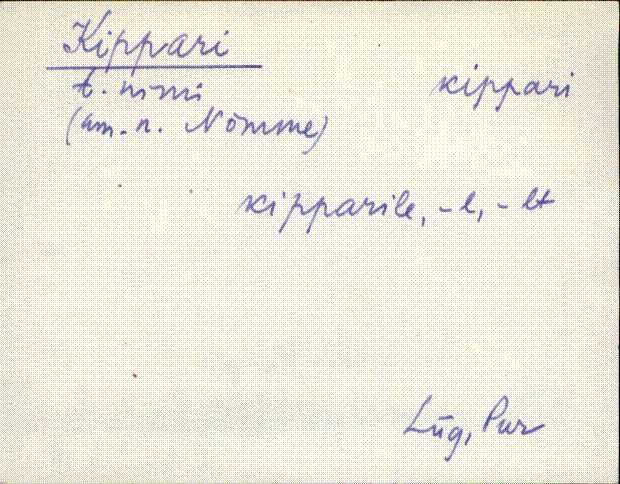 Kippari
t. nimi kippari
(am. n. Nõmme)
kipparile, -l, -lt
Lüg, Pur